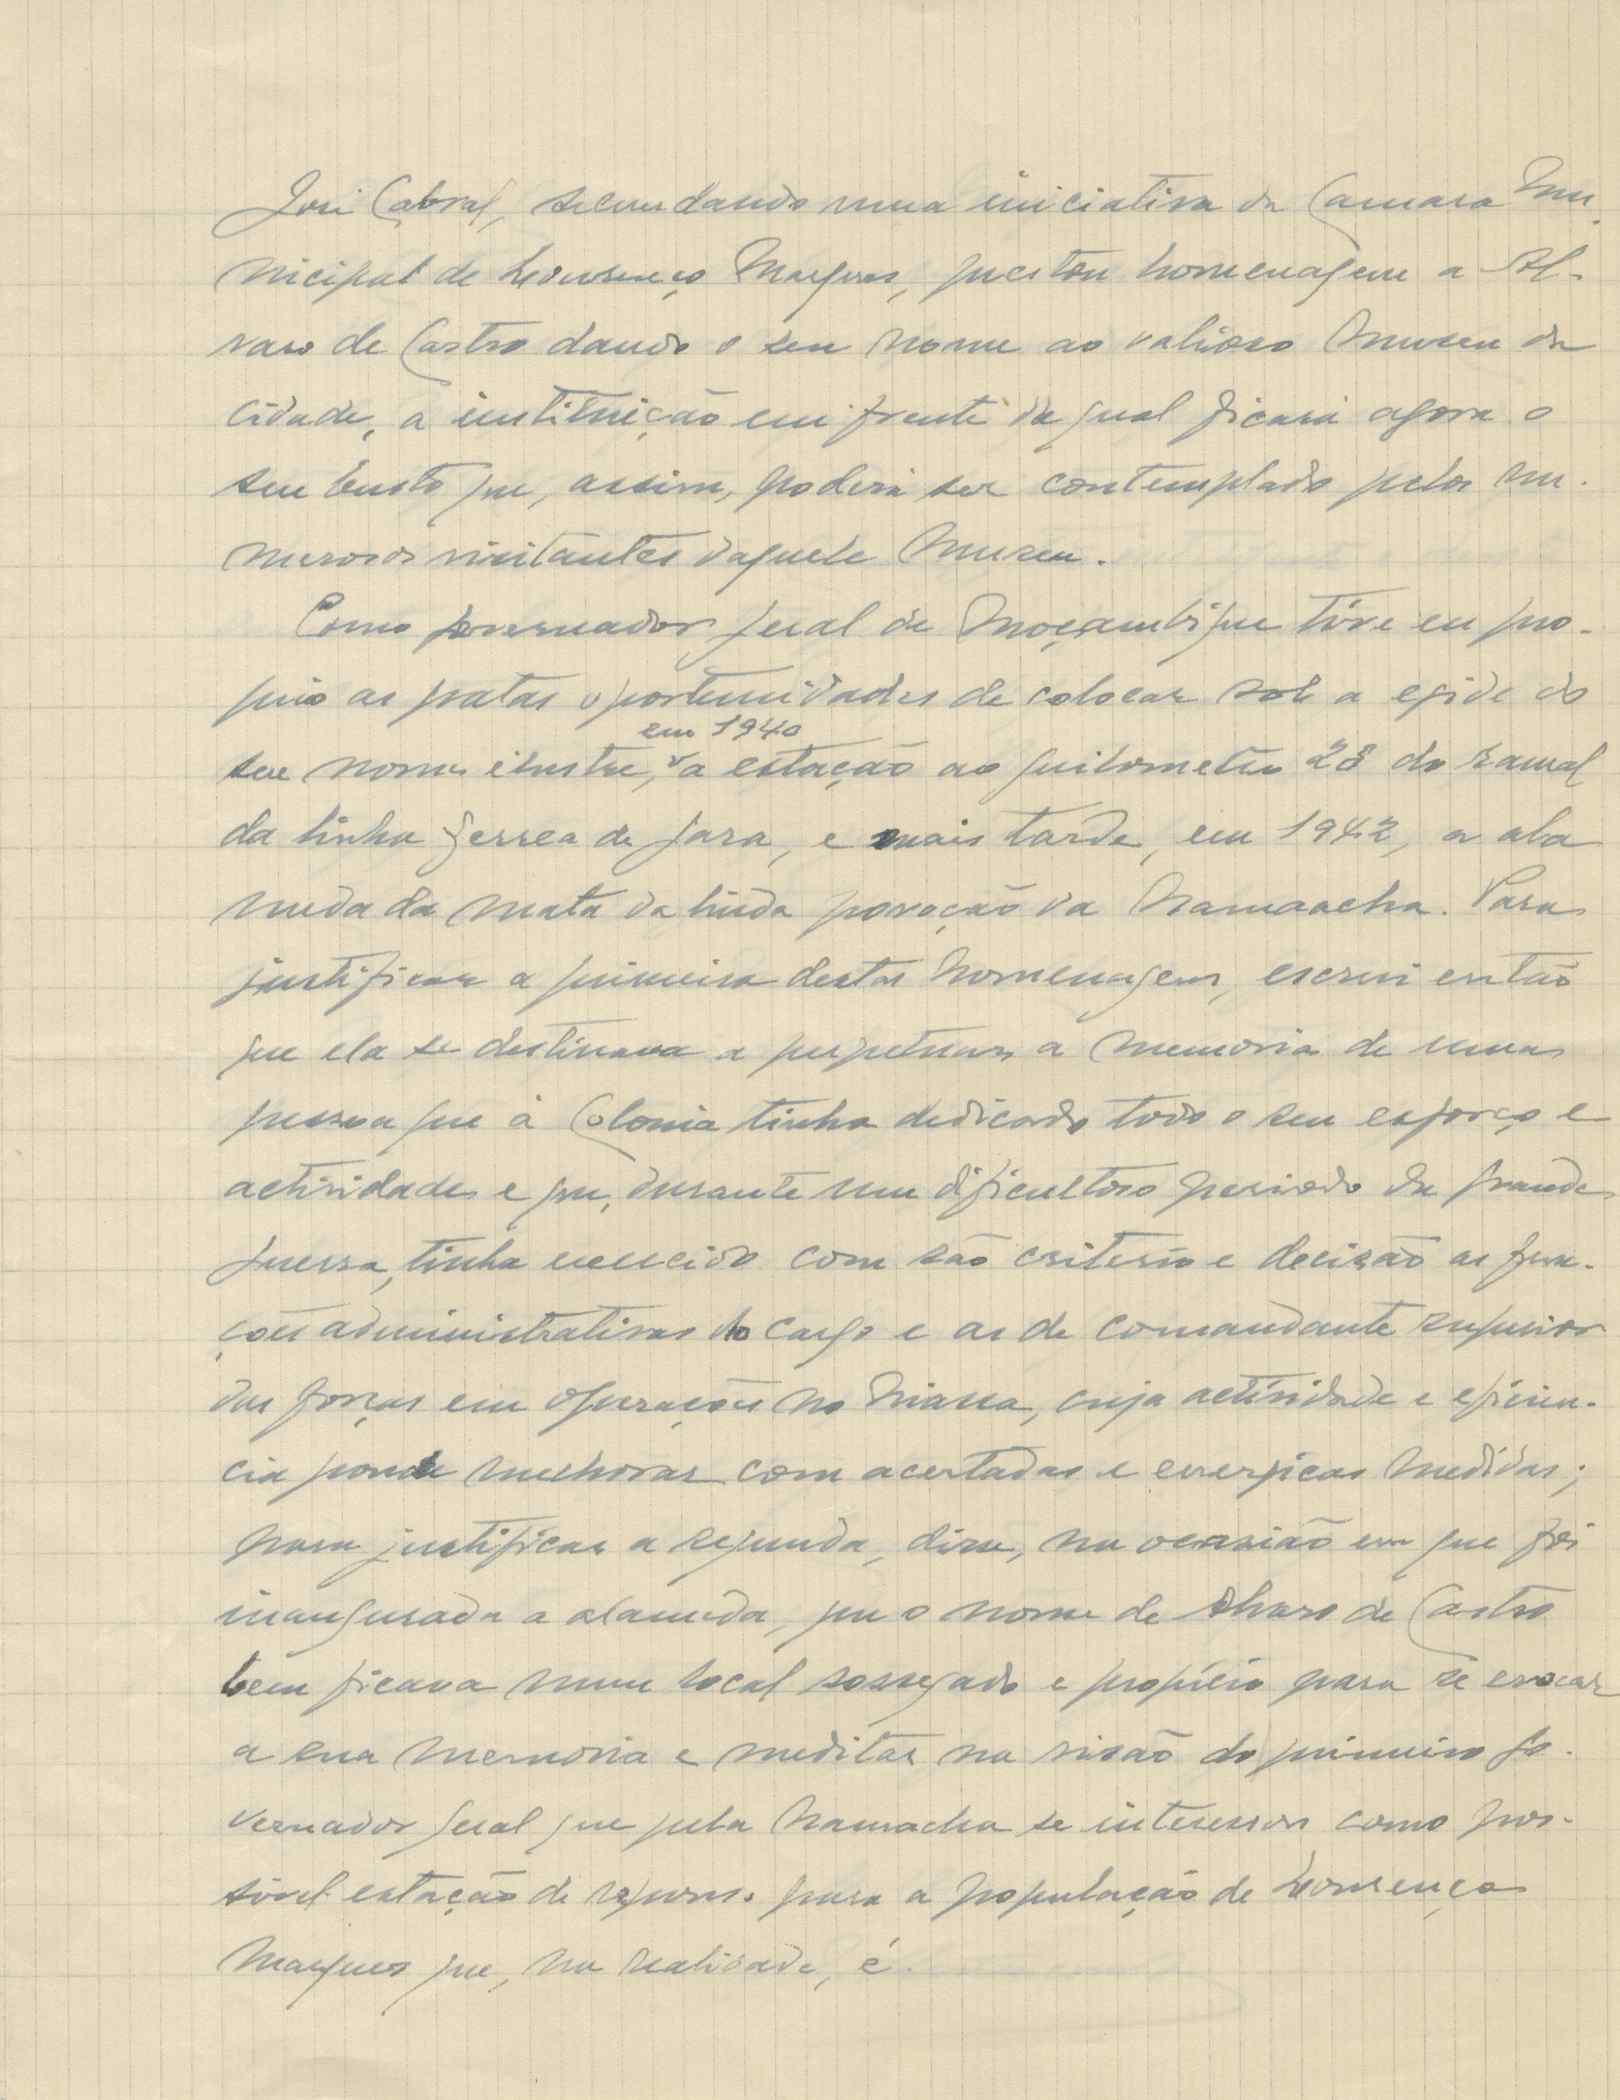 José Cabral, secundando uma iniciativa da Camara Mu-
nicipal de Lourenço Marques, prestou homenagem a Al-
varo de Castro dando o seu nome ao valioso Museu da
cidade, a instituição em frente da qual ficará agora o
seu busto que, assim, poderá ser contemplado pelos nu-
merosos visitantes daquele Museu.
Como governador geral de Moçambique tive eu pro-
prio as gratas oportunidades de colocar sob a egide do
em 1940
seu nome ilustre, a estação ao quilometro 28 do ramal
da linha ferrea de Goba, e mais tarde, em 1942, a ala
meda da mata da linda povoação da Namaacha. Para
justificar a primeira destas homenagens, escrevi então
que ela se destinava a perpetuar a memoria de uma
pessoa que à Colonia tinha dedicado todo o seu esforço e
actividade e que, durante um dificultoso periodo da grande
guerra, tinha exercido com são criterio e decisão as fun-
ções administrativas do cargo e as de comandante superior
das forças em operações no Niassa, cuja actividade e eficien-
cia poude melhorar com acertadas e energicas medidas;
para justificar a segunda, disse, na ocasião em que foi
inaugurada a alameda, que o nome de Alvaro de Castro
bem ficava num local sossegado e propicio para se evocar
a sua memoria e meditar na visão do primeiro go-
vernador geral que pela Namaacha se interessou como pos-
sivel estação de repouso para a população de Lourenço
Marques que, na realidade, é.